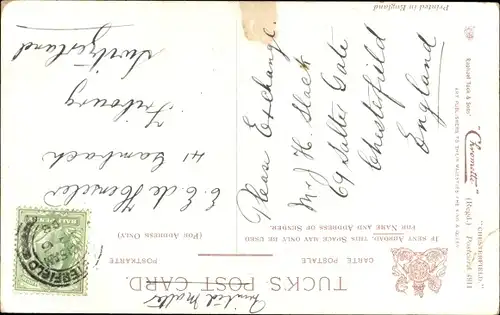 TUCK'S POST CARD.
CARTE POSTALE
POSTKARTE
(FOR ADDRESS ONLY)
IF SENT ABROAD, THIS SPACE MAY ONLY BE USED
FOR NAME AND ADDRESS OF SENDER.
Printed Matter
E. E. de Henseler
41 Lambach
Fribourg
Switzerland
Please Exchange.
Mr J. H. Slack
69 Salter Gate
Chesterfield
England
"CHESTERFIELD."
Postcard 4911
"Chromette"
(Regd.)
RAPHAEL TUCK & SONS'
ART PUBLISHERS TO THEIR MAJESTIES THE KING & QUEEN
Printed in England